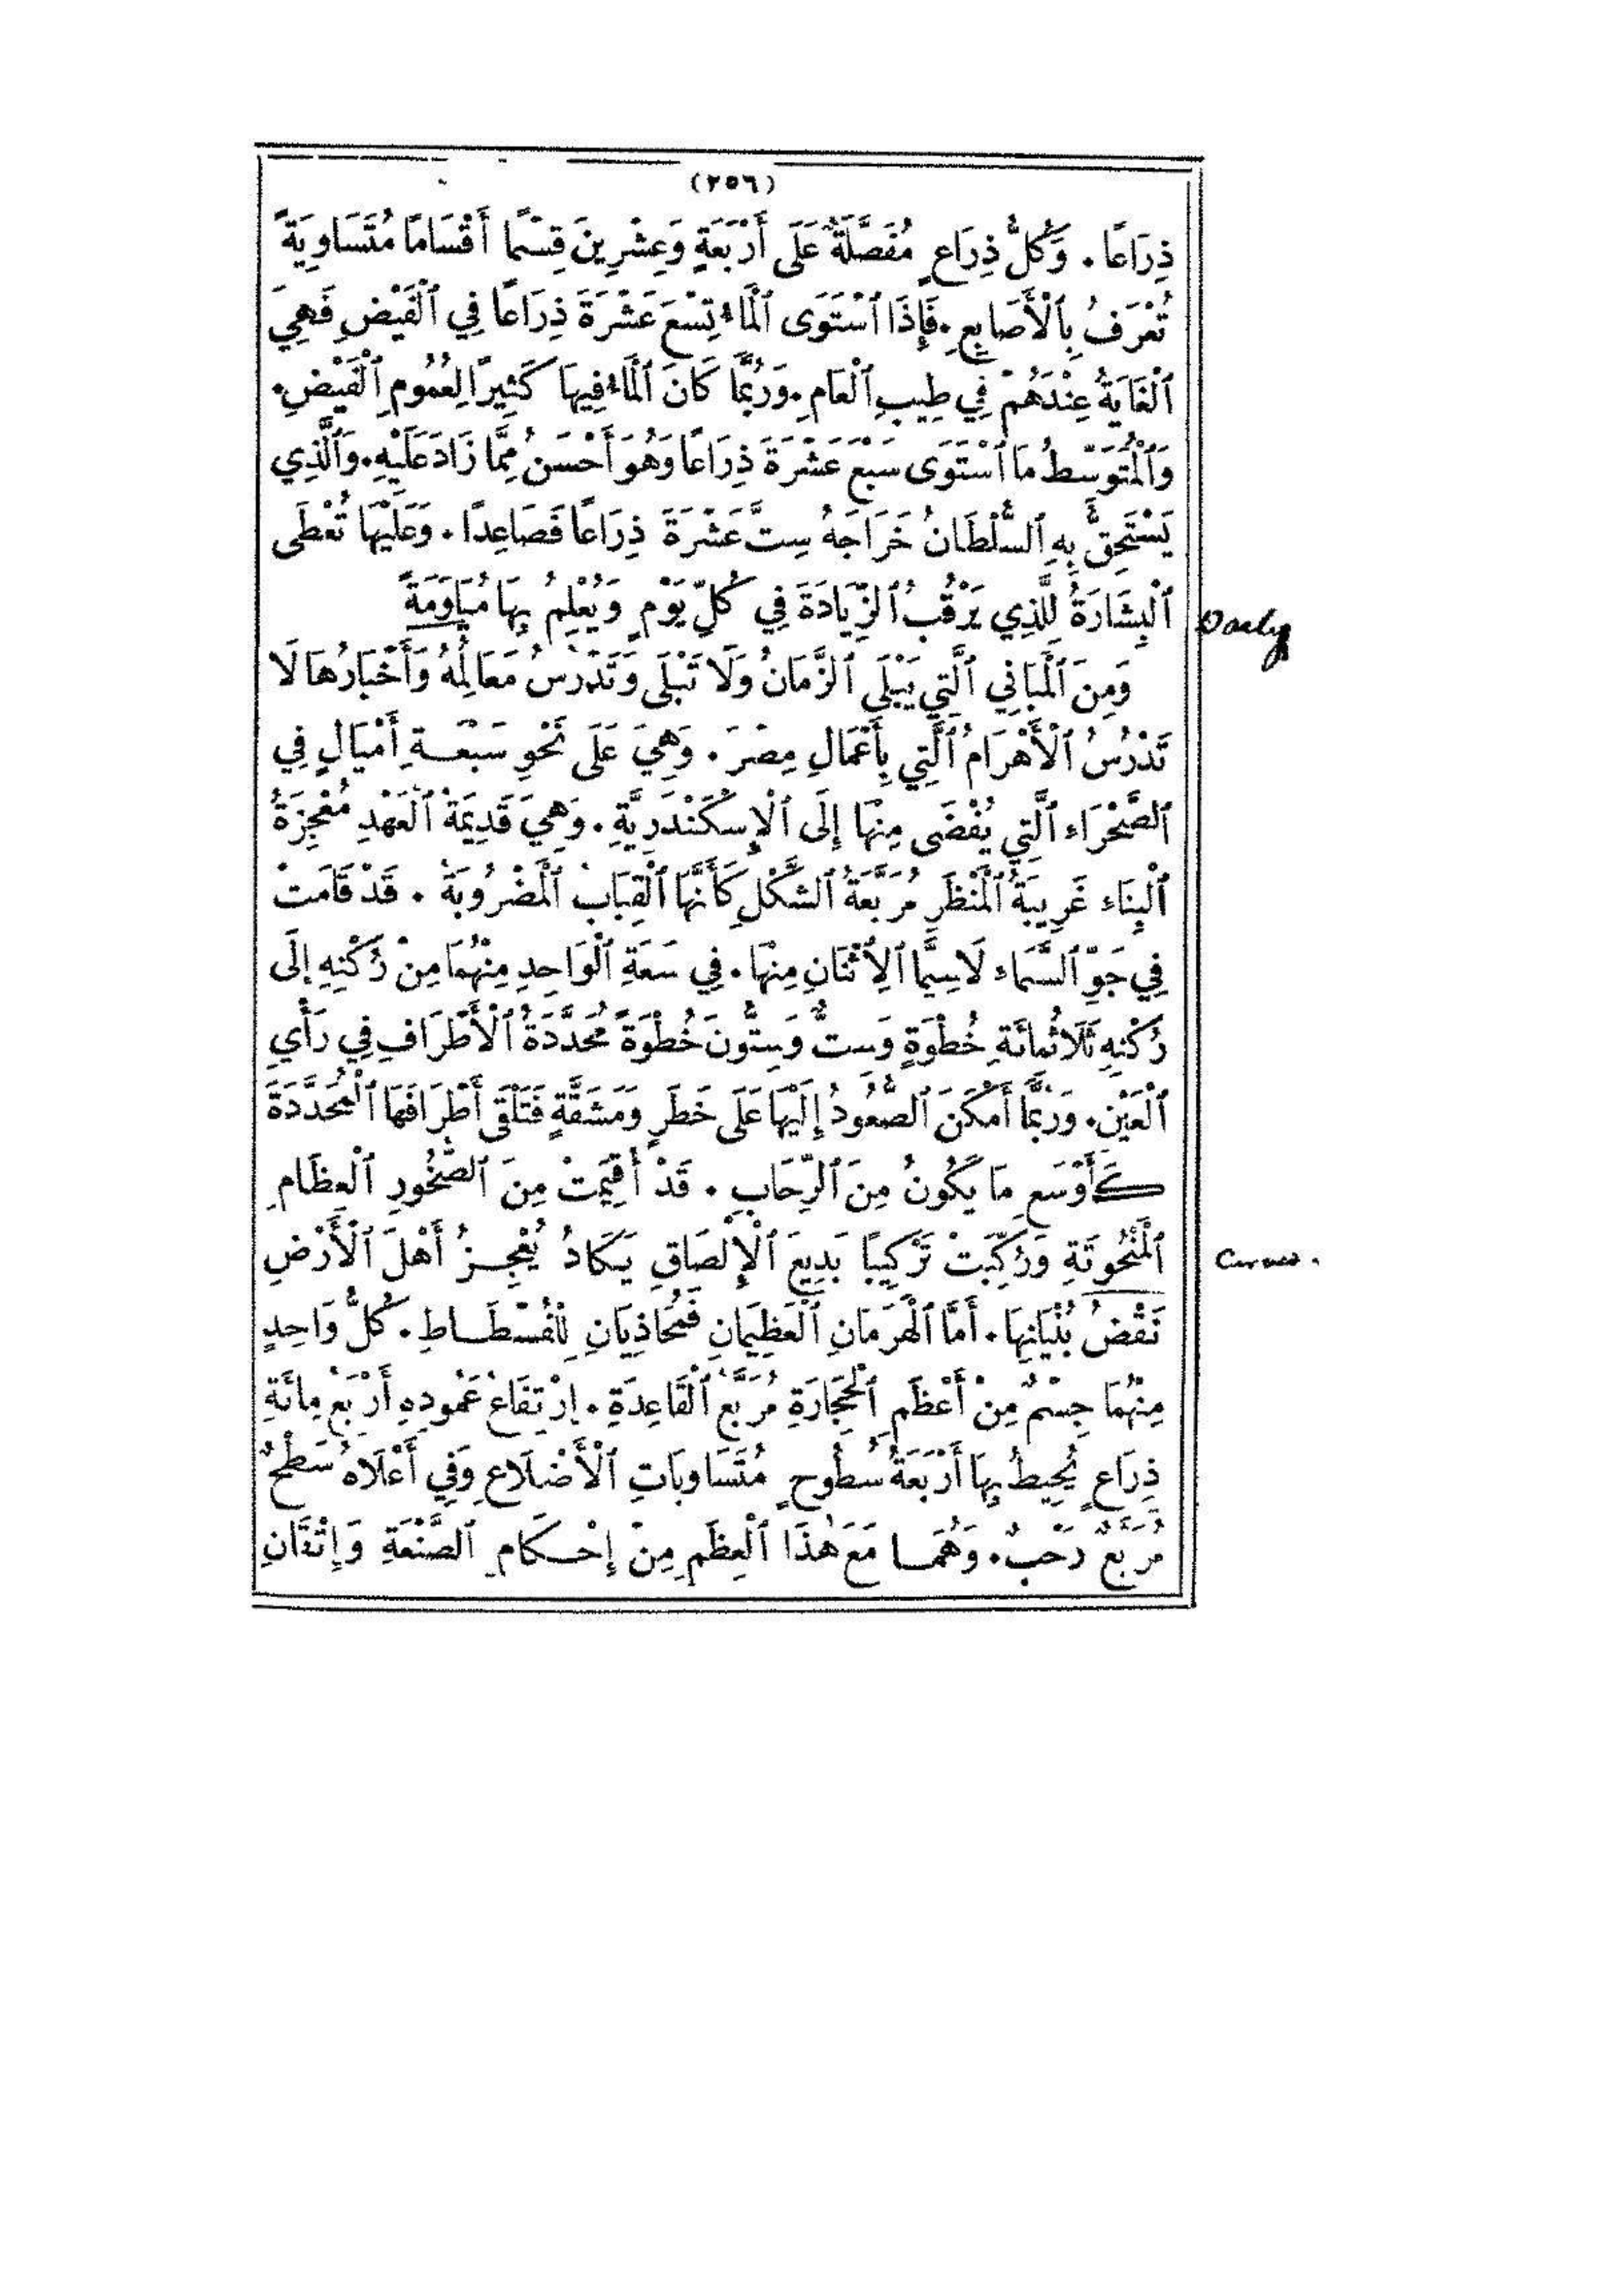 (٢٥٦)
ذِرَاعًا . وَكُلُّ ذِرَاعٍ مُفَصَّلَةٌ عَلَى أَرْبَعَةٍ وَعِشْرِينَ قِسْمًا أَقْسَامًا مُتَسَاوِيَةً
تُعْرَفُ بِٱلْأَصَابِعِ . فَإِذَا ٱسْتَوَى ٱلْمَاءُ تِسْعَ عَشْرَةَ ذِرَاعًا فِي ٱلْفَيْضِ فَهِيَ
ٱلْغَايَةُ عِنْدَهُمْ فِي طِيبِ ٱلْعَامِ . وَرُبَّمَا كَانَ ٱلْمَاءُ فِيهَا كَثِيرًا لِعُمُومِ ٱلْفَيْضِ .
وَٱلْمُتَوَسِّطُ مَا ٱسْتَوَى سَبْعَ عَشْرَةَ ذِرَاعًا وَهُوَ أَحْسَنُ مِمَّا زَادَ عَلَيْهِ . وَٱلَّذِي
يَسْتَحِقُّ بِهِ ٱلسُّلْطَانُ خَرَاجَهُ سِتَّ عَشْرَةَ ذِرَاعًا فَصَاعِدًا . وَعَلَيْهَا تُعْطَى
ٱلْبِشَارَةُ لِلَّذِي يَرْقُبُ ٱلزِّيَادَةَ فِي كُلِّ يَوْمٍ وَيُعْلِمُ بِهَا مُيَاوَمَةً
Daily
وَمِنَ ٱلْمَبَانِي ٱلَّتِي يَبْلَى ٱلزَّمَانُ وَلَا تَبْلَى وَتَدْرُسُ مَعَالِمُهُ وَأَخْبَارُهَا لَا
تَدْرُسُ ٱلْأَهْرَامُ ٱلَّتِي بِأَعْمَالِ مِصْرَ . وَهِيَ عَلَى نَحْوِ سَبْعَةِ أَمْيَالٍ فِي
ٱلصَّحْرَاءِ ٱلَّتِي يُفْضَى مِنْهَا إِلَى ٱلْإِسْكَنْدَرِيَّةِ . وَهِيَ قَدِيمَةُ ٱلْعَهْدِ مُعْجِزَةُ
ٱلْبِنَاءِ غَرِيبَةُ ٱلْمَنْظَرِ مُرَبَّعَةُ ٱلشَّكْلِ كَأَنَّهَا ٱلْقِبَابُ ٱلْمَضْرُوبَةُ . قَدْ قَامَتْ
فِي جَوِّ ٱلسَّمَاءِ لَاسِيَّمَا ٱلِٱثْنَانِ مِنْهَا . فِي سَعَةِ ٱلْوَاحِدِ مِنْهُمَا مِنْ رُكْنِهِ إِلَى
رُكْنِهِ ثَلَاثُمِائَةِ خُطْوَةٍ وَسِتٌّ وَسِتُّونَ خُطْوَةً مُحَدَّدَةُ ٱلْأَطْرَافِ فِي رَأْيِ
ٱلْعَيْنِ . وَرُبَّمَا أَمْكَنَ ٱلصُّعُودُ إِلَيْهَا عَلَى خَطَرٍ وَمَشَقَّةٍ فَتَلْقَى أَطْرَافَهَا ٱلْمُحَدَّدَةَ
كَأَوْسَعِ مَا يَكُونُ مِنَ ٱلرِّحَابِ . قَدْ أُقِيمَتْ مِنَ ٱلصُّخُورِ ٱلْعِظَامِ
ٱلْمَنْحُوتَةِ وَرُكِّبَتْ تَرْكِيبًا بَدِيعَ ٱلْإِلْصَاقِ يَكَادُ يُعْجِزُ أَهْلَ ٱلْأَرْضِ
نَقْضُ بُنْيَانِهَا . أَمَّا ٱلْهَرَمَانِ ٱلْعَظِيمَانِ فَمُحَاذِيَانِ لِلْفُسْطَاطِ . كُلُّ وَاحِدٍ
مِنْهُمَا جِسْمٌ مِنْ أَعْظَمِ ٱلْحِجَارَةِ مُرَبَّعُ ٱلْقَاعِدَةِ . اِرْتِفَاعُ عَمُودِهِ أَرْبَعُ مِائَةِ
ذِرَاعٍ يُحِيطُ بِهَا أَرْبَعَةُ سُطُوحٍ مُتَسَاوِيَاتِ ٱلْأَضْلَاعِ وَفِي أَعْلَاهُ سَطْحٌ
مُرَبَّعٌ رَحْبٌ . وَهُمَا مَعَ هٰذَا ٱلْعِظَمِ مِنْ إِحْكَامِ ٱلصَّنْعَةِ وَإِتْقَانِ